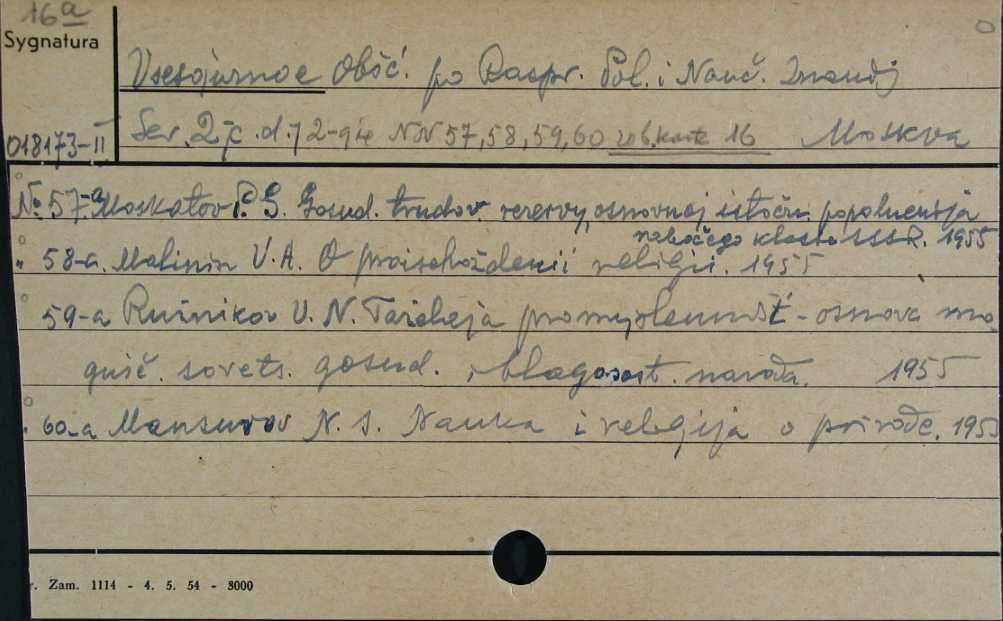 16a
Sygnatura
Vsesojuznoe Obšč. po Raspr. Pol. i Nauč. Znanij
018173-II
Ser. 2-ja NN 57, 58, 59, 60 zob. karta 16 Moskva
No 57-a Moskatov P. G. Gosud. trudov. rezervy, osnovnoj istočn. popolnenija
rabočego klassa SSSR. 1955
" 58-a. Malinin V. A. O proischoždenii religii. 1955
59-a Ručnikov V. N. promyšlennost' - osnova mo
gušč. sovets. gosud. i blagosost. naroda. 1955
60-a Mansurov N. S. Nauka i religija o prirode. 195
r. Zam. 1114 - 4. 5. 54 - 3000